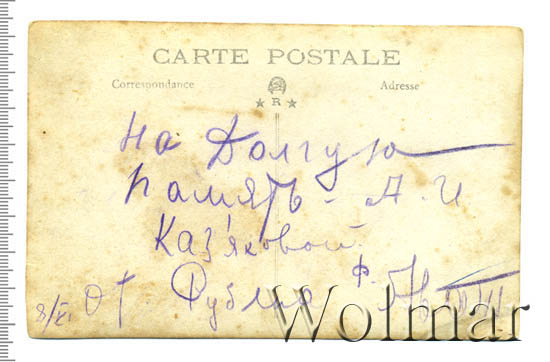 CARTE POSTALE
Correspondance Adresse
★ R ★
На Долгую
память - А. И
Казъяковой
От Ф.
8/XI
Wolmar